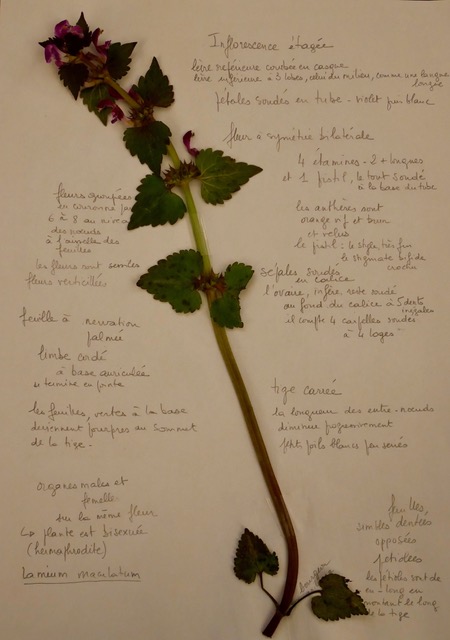 Inflorescence étagée
lèvre supérieure courbée en casque
lèvre inférieure à 3 lobes, celui du milieu, comme une langue
longée
pétales soudés en tube - violet puis blanc
fleur à symétrie bilatérale
4 étamines - 2 + longues
et 1 pistil, le tout soudé
à la base du tube
les anthères sont
orange vif et brun
et velus
le pistil : le style très fin
le stigmate bifide
crochu
sépales soudés
en calice
l'ovaire, infère, reste soudé
au fond du calice à 5 dents
inégales
il compte 4 carpelles soudés
à 4 loges
fleurs groupées
en couronne par
6 à 8 au niveau
des nœuds
à l'aisselle des
feuilles
les fleurs sont sessiles
fleurs verticillées
feuille à nervation
palmée
limbe cordé
à base auriculée
se termine en pointe
les feuilles, vertes à la base
deviennent pourpres au sommet
de la tige.
organes males et
femelle
sur la même fleur
↳ plante est bisexuée
(hermaphrodite)
Lamium maculatum
tige carrée
la longueur des entre-nœuds
diminue progressivement
petits poils blancs peu serrés
feuilles,
simples dentées
opposées
pétiolées
les pétioles sont de
en - long en
montant le long
de la tige
bourgeon